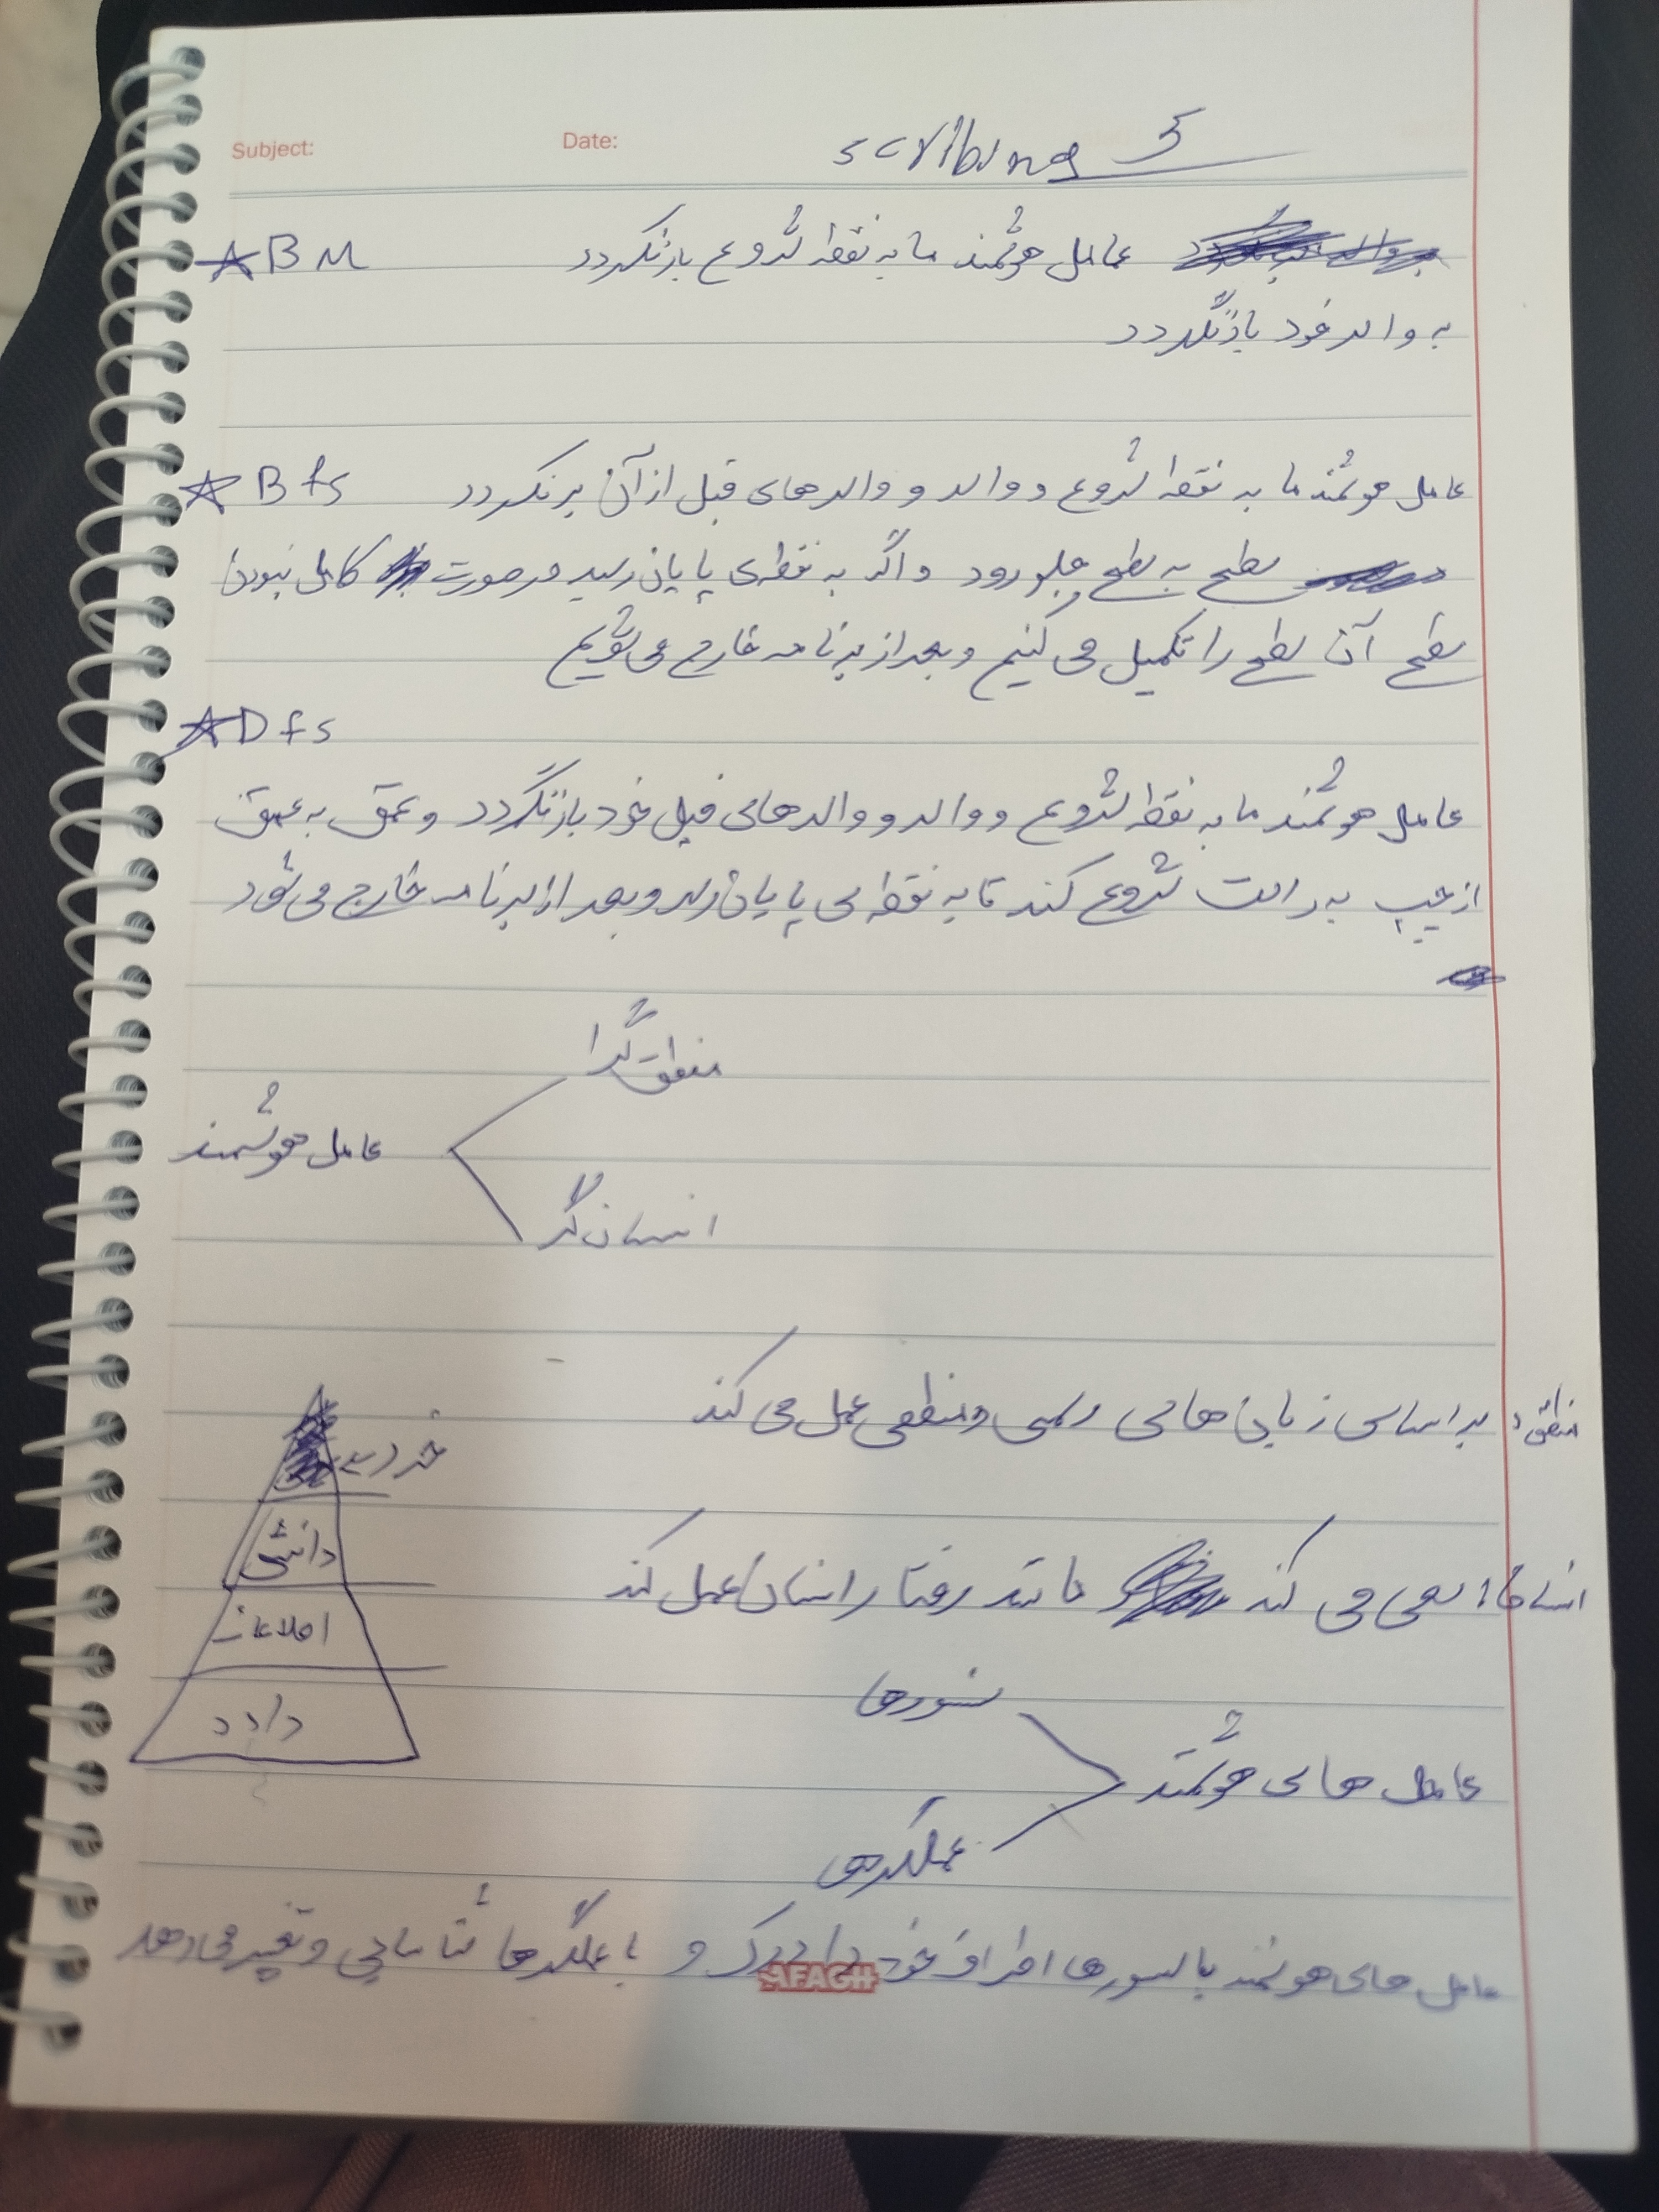 Subject: Date: scribing 5
ABM عامل هوشمند ما به نقطه شروع بازنگردد
به والد خود بازنگردد
Bfs عامل هوشمند ما به نقطه شروع و والد و والدهای قبل از آن برنگردد
سطح به سطح جلو رود و اگر به نقطه‌ی پایان رسید در صورت کامل نبودن
سطح آن سطح را تکمیل می کنیم و بعد از برنامه خارج می شویم
Dfs
عامل هوشمند ما به نقطه شروع و والد و والدهای قبل خود بازنگردد و عمق به عمق
از چپ به راست شروع کند تا به نقطه ی پایان رسد و بعد از برنامه خارج می شود
منطق گرا
عامل هوشمند
انسان گرا
منطق: بر اساس زبان هامی رسمی و منطقی عمل می کند
خرد
دانش
انسان: سعی می کند مانند رفتار انسان عمل کند
اطلاعات
سنسورها
داده
عامل های هوشمند
عملگرها
عامل های هوشمند با سنسورها اطراف خود را درک و با عملگرها شناسایی و تغییر می دهد
AFAGH